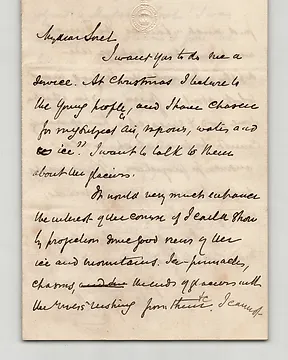 My dear Soret
I want you to do me a
service. At Christmas I lecture to
the young people, and I have chosen
for my subject "air, vapour, water and
ice". I want to talk to them
about the glaciers.
It would very much enhance
the interest of the course if I could show
by projection some good views of the
ice and mountains. Ice-pinnacles,
chasms, the ends of glaciers with
the rivers rushing from them &c. I cannot